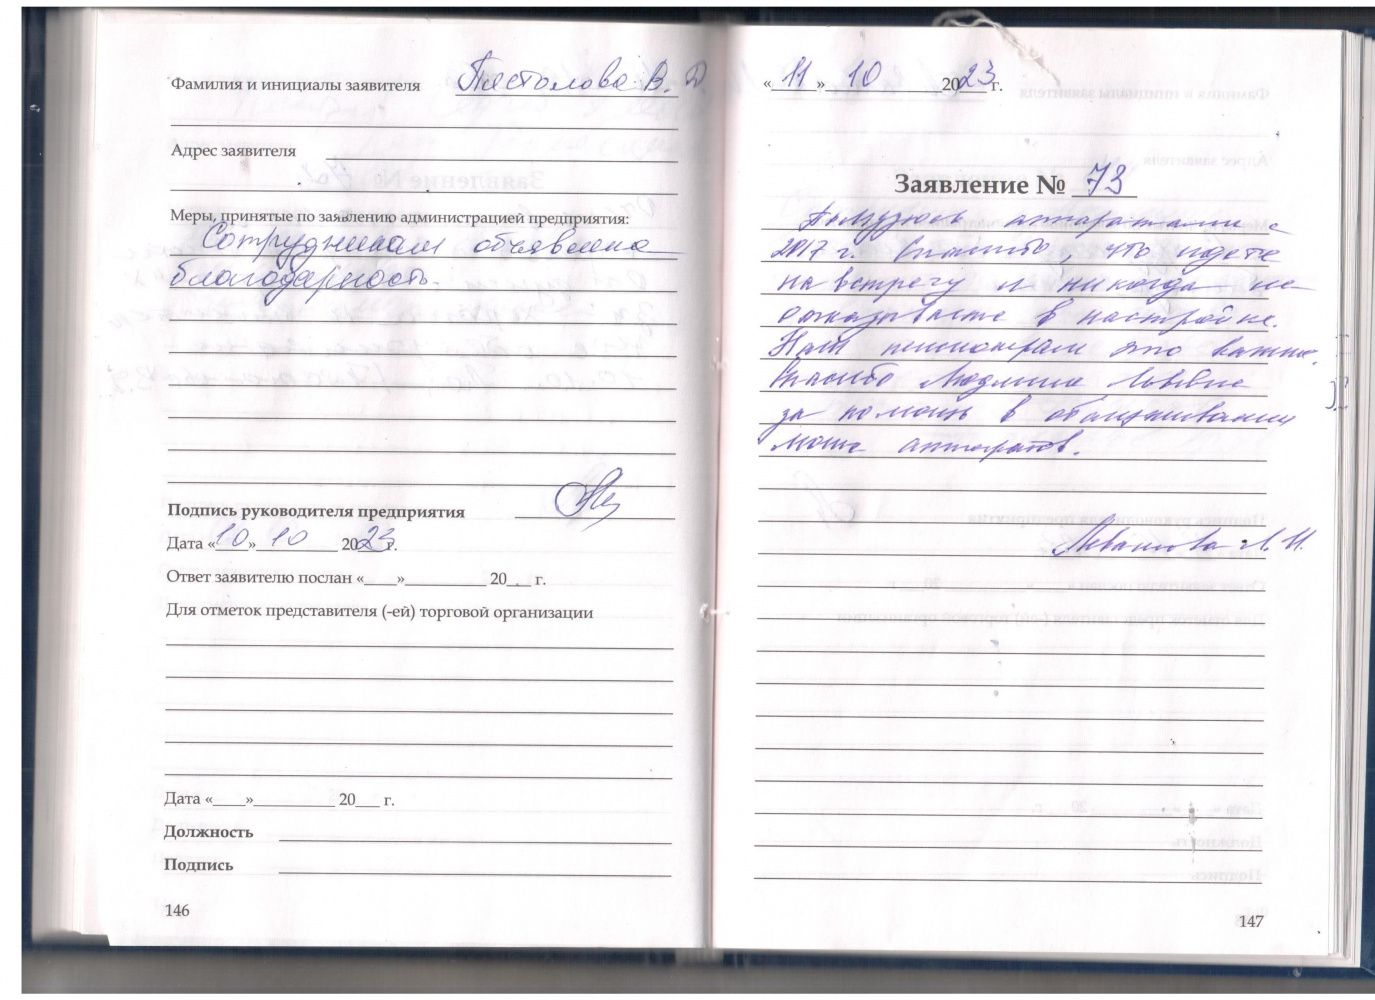 Фамилия и инициалы заявителя Пестолова В. Д.
Адрес заявителя
Меры, принятые по заявлению администрацией предприятия:
Сотрудникам объявлена
благодарность.
Подпись руководителя предприятия
Дата «10» 10 2023г.
Ответ заявителю послан «____»__________ 20___ г.
Для отметок представителя (-ей) торговой организации
Дата «____»__________ 20___ г.
Должность
Подпись
146
«11» 10 2023г.
Заявление № 73
Пользуюсь аппаратами с
2017 г. Спасибо, что идете
на встречу и никогда не
отказываете в настройке.
Нам пенсионерам это важно.
Спасибо Людмиле Львовне
за помощь в обслуживании
моих аппаратов.
Л. И.
147